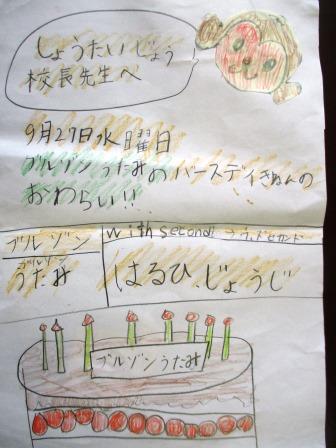 しょうたいじょう
校長先生へ
9月27日水曜日
ブルゾンうたみのバースディきねんの
おわらい!!
ブルゾン
ブルゾン
うたみ
with second ウィズセカンド
はるひ じょうじ
ブルゾンうたみ